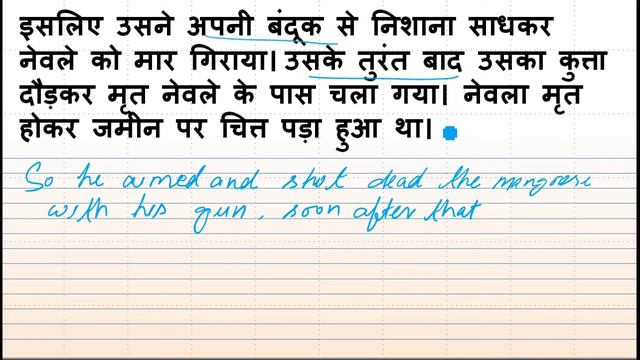 इसलिए उसने अपनी बंदूक से निशाना साधकर
नेवले को मार गिराया। उसके तुरंत बाद उसका कुत्ता
दौड़कर मृत नेवले के पास चला गया। नेवला मृत
होकर जमीन पर चित्त पड़ा हुआ था।
So he aimed and shot dead the mangoose
with his gun. soon after that